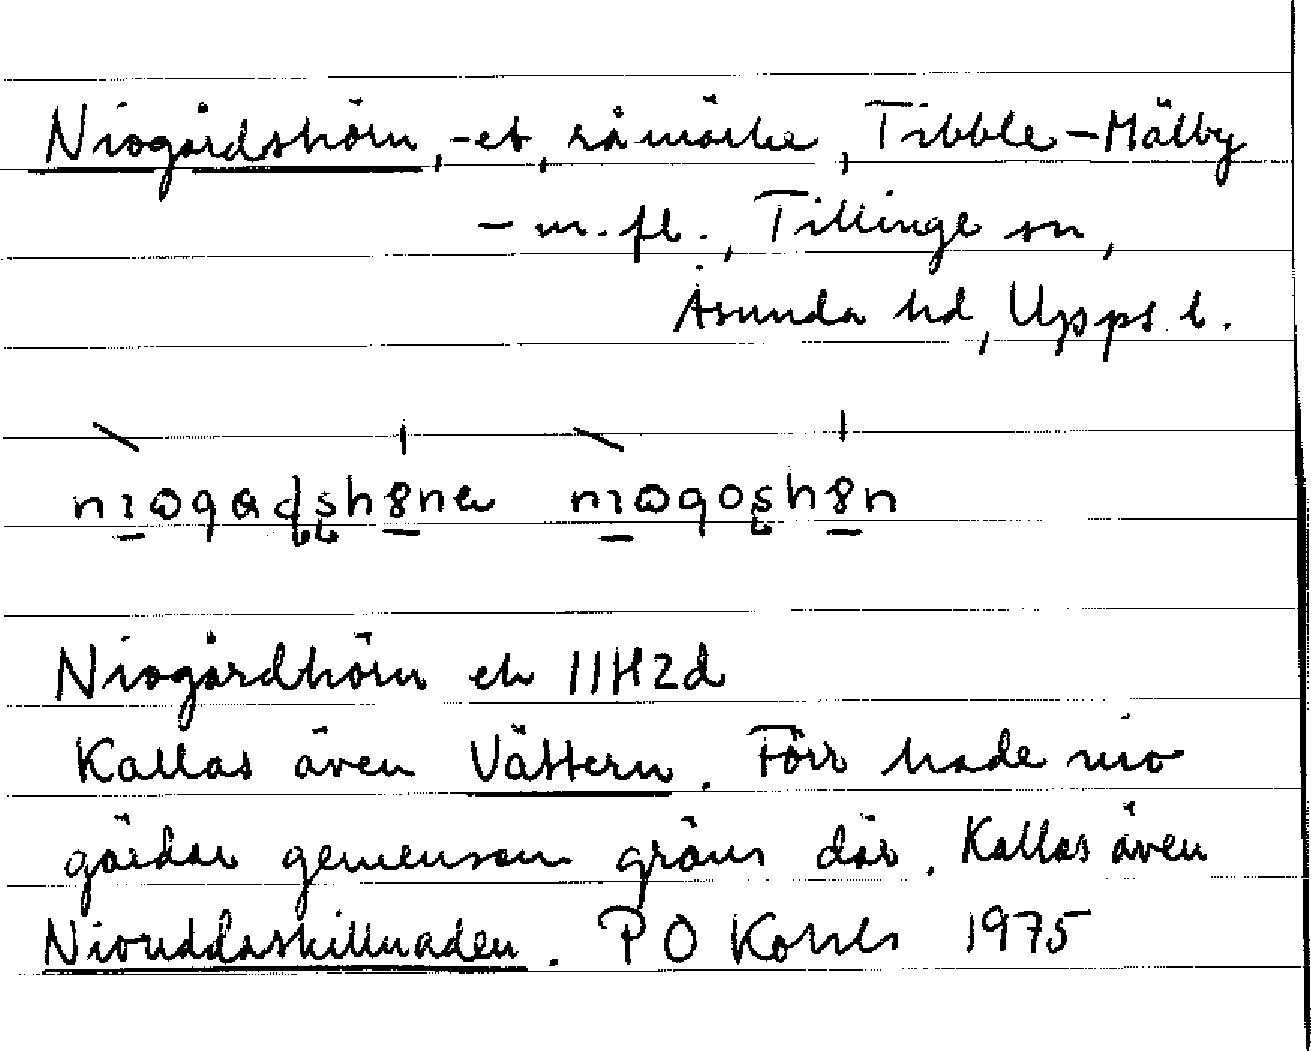 Niogårdshörn, -et, råmärke, Tibble – Mälby
– m.fl., Tillinge sn,
Åsunda hd, Upps. l.
Niogårdhörn ek 11H2d
Kallas även Vättern. Förr hade nio
gårdar gemensam gräns där. Kallas även
Nioruddaskillnaden. P O 1975